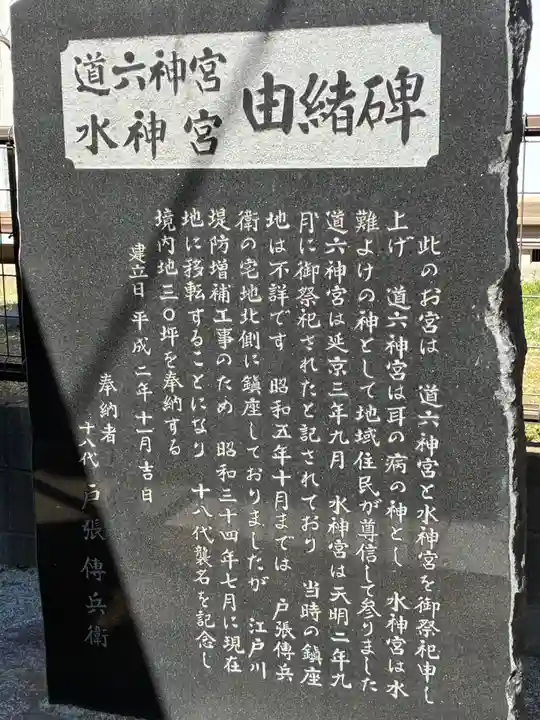 道六神宮
水神宮
由緒碑
此のお宮は 道六神宮と水神宮を御祭祀申し
上げ 道六神宮は耳の病の神とし 水神宮は水
難よけの神として地域住民が尊信して参りました
道六神宮は延京三年九月 水神宮は天明二年九
月に御祭祀されたと記されており 当時の鎮座
地は不詳です 昭和五年十月までは 戸張傳兵
衛の宅地北側に鎮座しておりましたが 江戸川
堤防増補工事のため 昭和三十四年七月に現在
地に移転することになり 十八代襲名を記念し
境内地三〇坪を奉納する
建立日 平成二年十一月吉日
奉納者
十八代 戸張傳兵衛